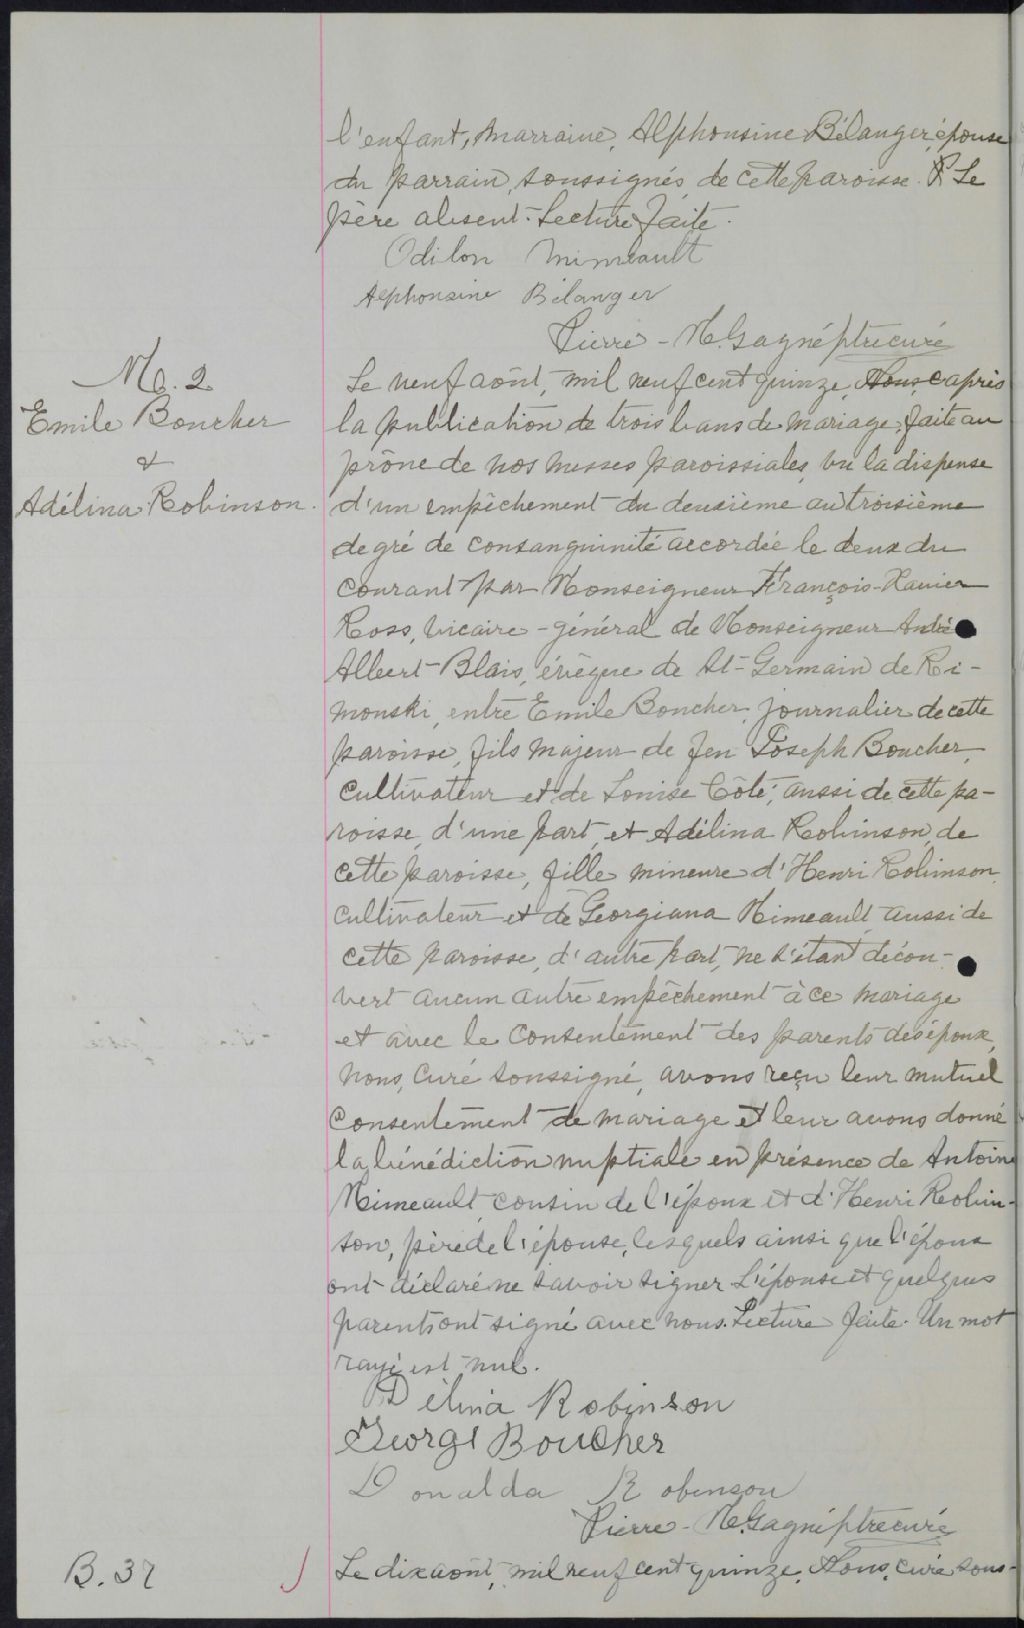 l'enfant, marraine, Alphonsine Bélanger, épouse
du parrain, soussignés, de cette paroisse. Le
père absent. Lecture faite.
Odilon Mimeault
Alphonsine Bélanger
Pierre-M. Gagné ptre curé
M. 2
Emile Boucher
&
Adélina Robinson.
Le neuf août, mil neuf cent quinze, Nous, après
la publication de trois bans de mariage, faite au
prône de nos messes paroissiales, vu la dispense
d'un empêchement du deuxième au troisième
degré de consanguinité accordée le deux du
courant par Monseigneur François-Xavier
Ross, vicaire-général de Monseigneur André
Albert Blais, évêque de St-Germain de Ri-
mouski, entre Emile Boucher, journalier de cette
paroisse, fils majeur de feu Joseph Boucher,
cultivateur et de Louise Côté, aussi de cette pa-
roisse, d'une part, et Adélina Robinson, de
cette paroisse, fille mineure d'Henri Robinson,
cultivateur et de Georgiana Mimeault, aussi de
cette paroisse, d'autre part, ne s'étant décou-
vert aucun autre empêchement à ce mariage
et avec le consentement des parents des époux,
Nous, curé soussigné, avons reçu leur mutuel
consentement de mariage et leur avons donné
la bénédiction nuptiale en présence de Antoine
Mimeault cousin de l'époux et d'Henri Robin-
son, père de l'épouse, lesquels ainsi que l'époux
ont déclaré ne savoir signer. L'épouse et quelques
parents ont signé avec nous. Lecture faite. Un mot
rayé est nul.
Délina Robinson
George Boucher
Donalda Robinson
Pierre-M. Gagné ptre curé
B. 37
Le dix août, mil neuf cent quinze, Nous, curé sous-